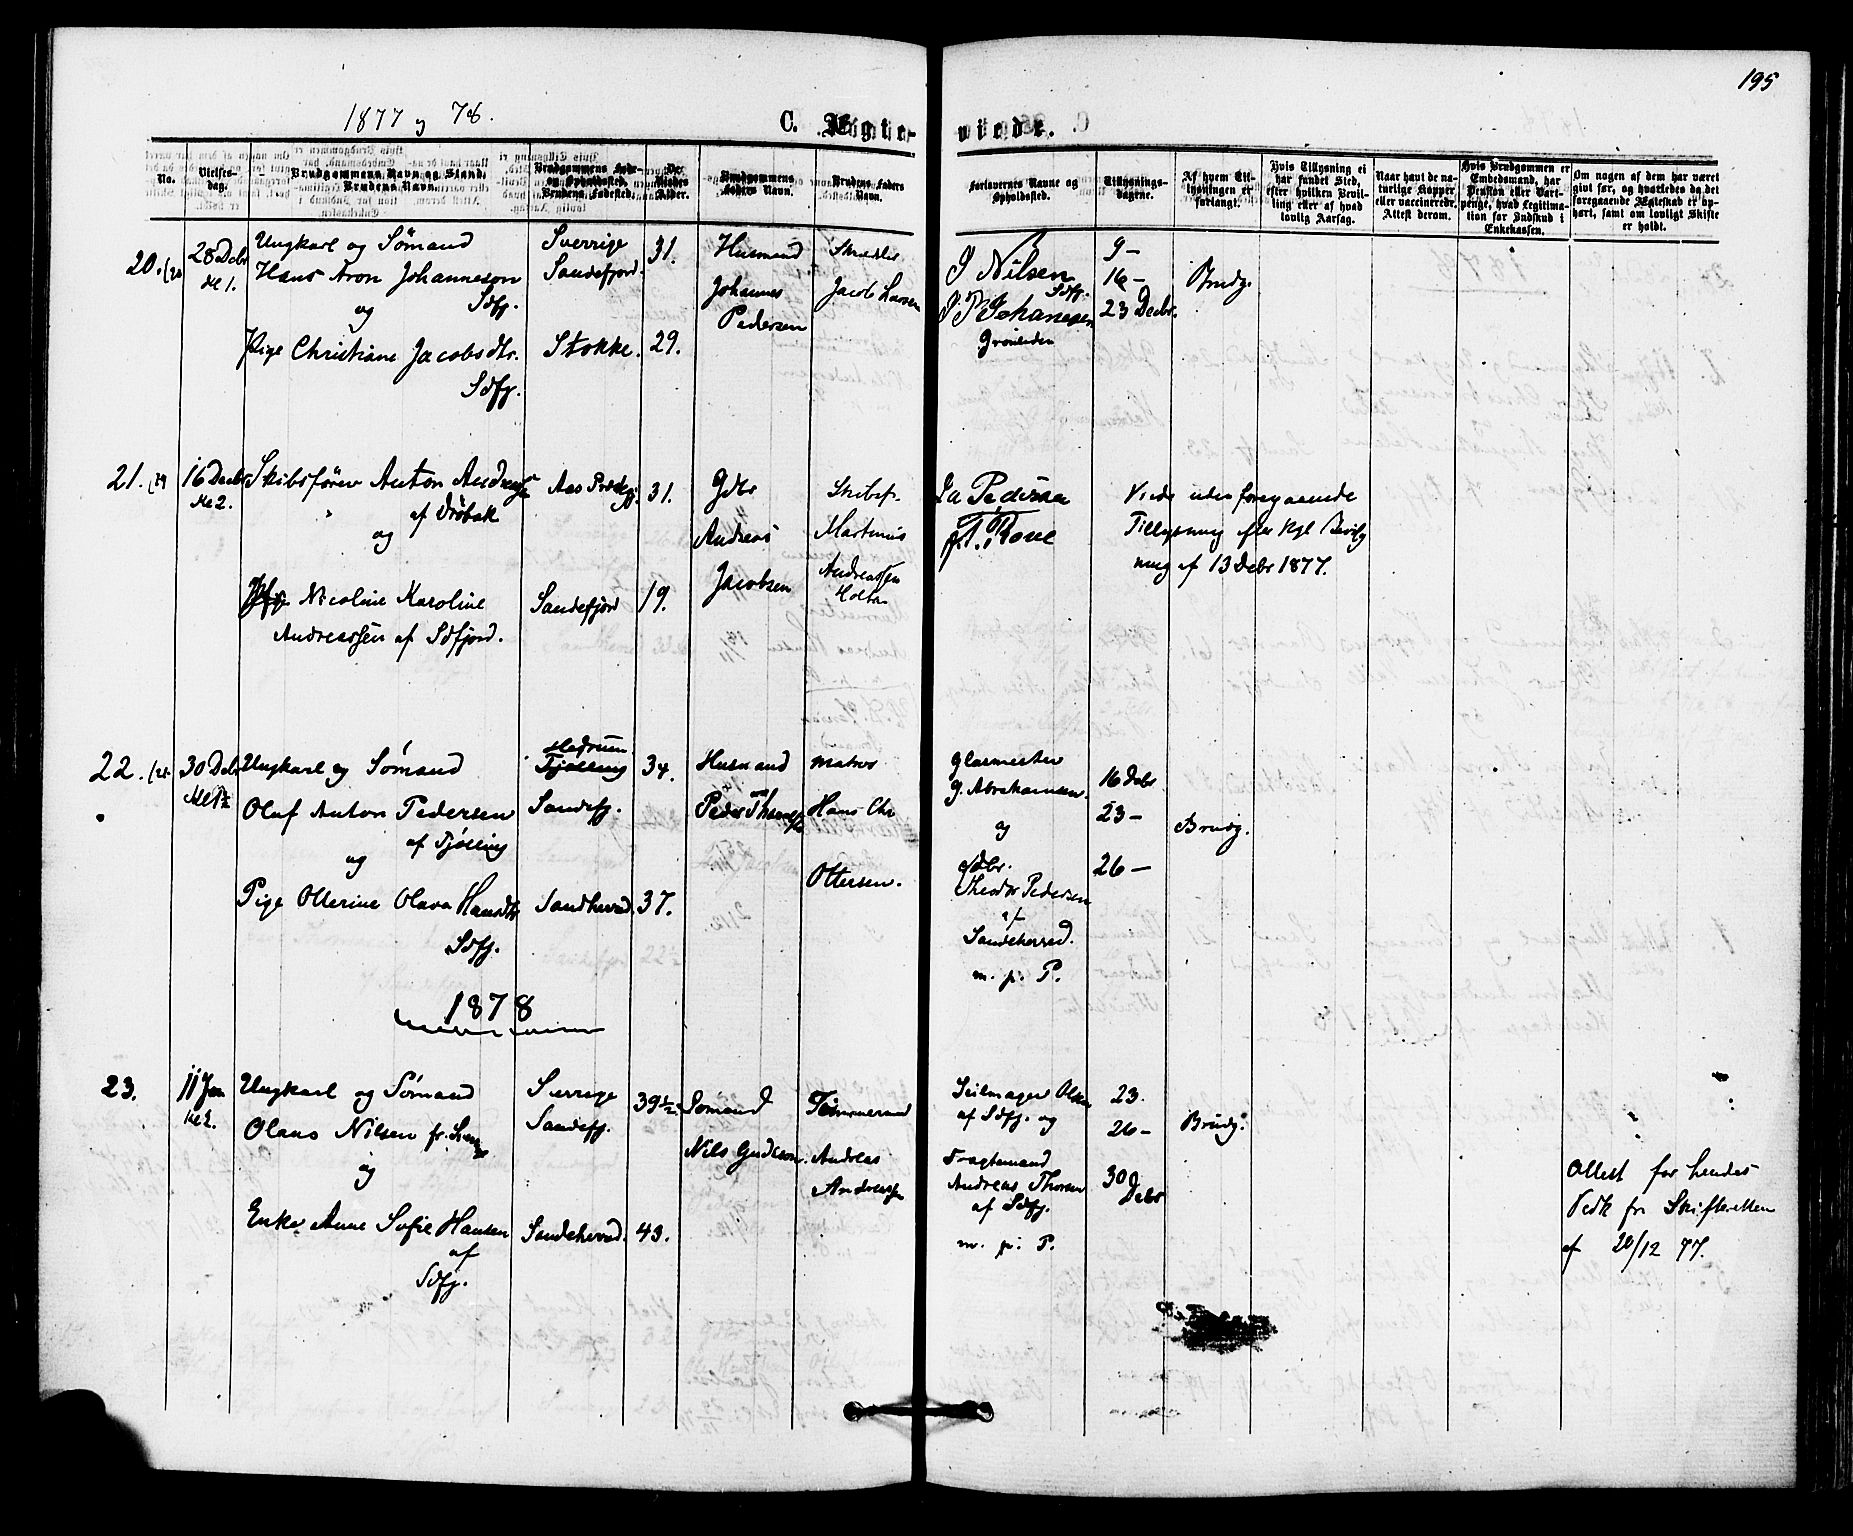 195
1877 og 78.
C. Ægte-
viede.
No.
Vielses-
dag.
Brudgommens Navn og Stand.
Brudens Navn.
Brudgommens Føde-
og Opholdssted.
Brudens Fødested.
De
Viedes
Alder.
Brudgommens
Faders Navn.
Brudens Faders
Navn.
Forlovernes Navne og
Opholdssted.
Tillysnings-
dagene.
Af hvem Til-
lysningen er
forlangt.
Hvis Tillysning ei
har fundet Sted,
efter hvilken Bevil-
ling eller af hvad
lovlig Aarsag.
Naar havt de na-
turlige Kopper
eller vaccinerede,
Attest derom.
Hvis Brudgommen er
Embedsmand, har
Pension eller Vart-
penge, hvad Legitima-
tion for Indskud i
Enkekassen.
Om nogen af dem har været
givt før, og hvorledes da det
foregaaende Ægteskab er op-
hørt, samt om lovligt Skifte
er holdt.
20.
28 Debr
Kl 1.
Ungkarl og Sømand
Hans Aron Johanneson
Sdfj.
og
Pige Christiane Jacobsdtr.
Sdfj.
Sverrige
Sandefjord.
Stokke.
31.
29.
Husmand
Johannes
Pedersen
Jacob Larsen
J Nilsen
Sdfj.
Johanesen
9 –
16 –
23 Decbr.
Brudg.
21.
16 Decbr
Kl 2.
Skibsfører Anton Andreas
af Drøbak
og
Nicoline Karoline
Andreassen af Sdfjord.
Aas Prstgj.
Sandefjord
31.
19.
Gdbr
Andreas
Jacobsen
Skibsf.
Martinus
Andreassen
Holtan
Pedersen
Viede uden foregaaende
Tillysning efter Kgl Bevilg
ning af 13 Debr 1877.
22.
30 Debr
Ungkarl og Sømand
Oluf Anton Pedersen
af Tjølling
og
Pige Otterine Olava Hansdtr
Sdfj.
Hedrum
Tjølling
Sandefj.
Sandherred.
34.
37.
Husmand
Peder
Matros
Hans Chr
Ottersen.
Glarmester
G. Abrahamsen.
og
Gdbr.
Theodor Pedersen
af
Sandeherred.
m. p. P.
16 Debr
23 –
26 –
Brudg.
1878
23.
11 Jan
Kl 2.
Ungkarl og Sømand
Olaus Nilsen
og
Enke Anne Sofie Hansen
af
Sdfj.
Sverrige
Sandefj.
Sandeherred.
39 1/2
43.
Sømand
Nils Gudeson
Tømmermand
Andreas
Andreassen
Seilmager Olsen
af Sdfj. og
Fragtemand
Andreas Thorsen
af Sdfj.
m. p. P.
23.
26 –
30 Debr
Brudg.
Attest for hendes
Vedk fr Skifteretten
af 20/12 77.